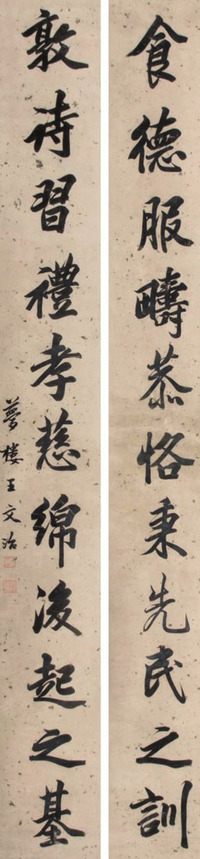 食德服疇恭恪秉先民之訓
敦詩習禮孝慈綿後起之基
夢樓王文治